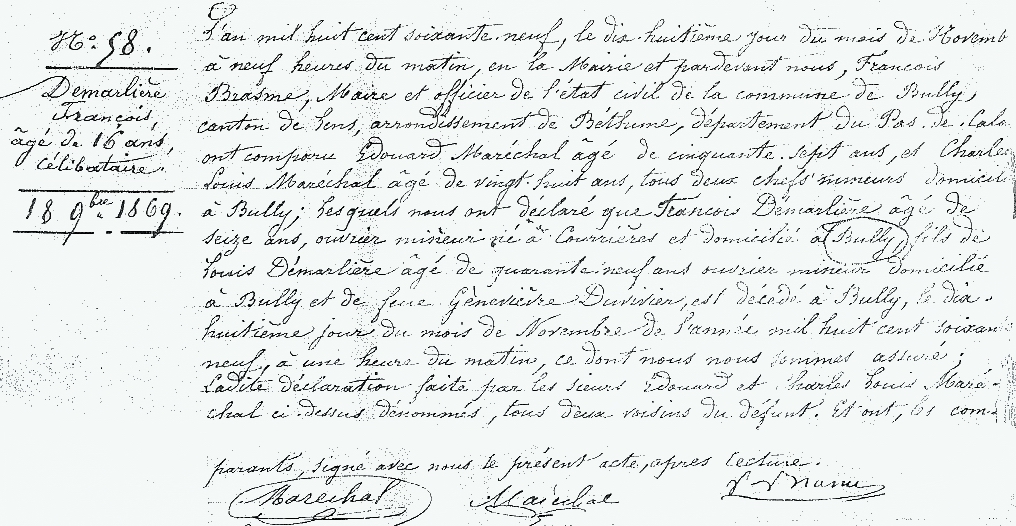 N.º 58.
Démarlière
François,
âgé de 16 ans,
célibataire.
18 9bre 1869.
L'an mil huit cent soixante-neuf, le dix-huitième jour du mois de Novemb
à neuf heures du matin, en la Mairie et pardevant nous, François
Brasme, Maire et officier de l'état civil de la commune de Bully,
canton de Lens, arrondissement de Béthume, département du Pas-de-Cala
ont comparu Edouard Maréchal âgé de cinquante-sept ans, et Charles
Louis Maréchal âgé de vingt-huit ans, tous deux chefs mineurs domicili
à Bully; Lesquels nous ont déclaré que François Démarlière âgé de
seize ans, ouvrier mineur né à Courrières et domicilié à Bully, fils de
Louis Démarlière âgé de quarante-neuf ans ouvrier mineur domicilié
à Bully et de feue Géneviève Duvivier, est décédé à Bully, le dix-
huitième jour du mois de Novembre de l'année mil huit cent soixante
neuf, à une heure du matin, ce dont nous nous sommes assuré;
Ladite déclaration faite par les sieurs Edouard et Charles Louis Maré-
chal ci-dessus dénommés, tous deux voisins du défunt. Et ont, les com-
parants, signé avec nous le présent acte, après lecture.
Maréchal Maréchal Brasme